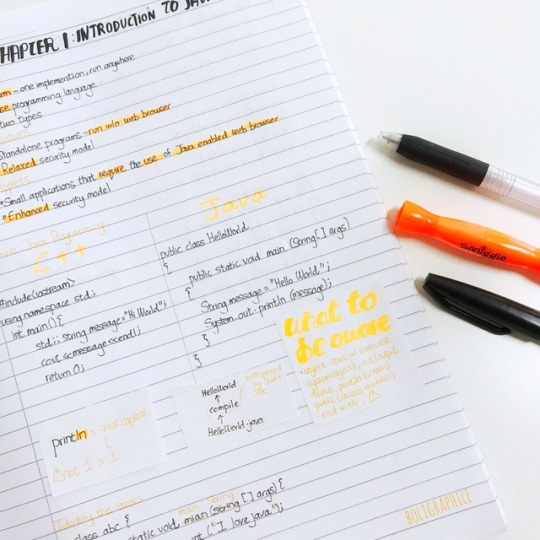 CHAPTER 1: INTRODUCTION TO JAVA
- one implemention, run anywhere
programming language
two types
Standalone programs - run w/o web browser
Relaxed security model
• Small applications that require the use of Java enabled web browser
• Enhanced security model
C++
#include<iostream>
using namespace std;
int main() {
std:: string message = "Hi World";
cout << message << endl;
return 0;
Java
public class HelloWorld
{
public static void main (String[] args)
{
String message = "Hello World";
System.out.println (message);
}
}
println is small capital
L
not 1 or I
HelloWorld
↑
compile
↑
HelloWorld.java
what to
be aware
Identify the errors
class abc {
static void mian (string [] args) {
main String
("I love java");
BOLIGRAPHILE
smiggle